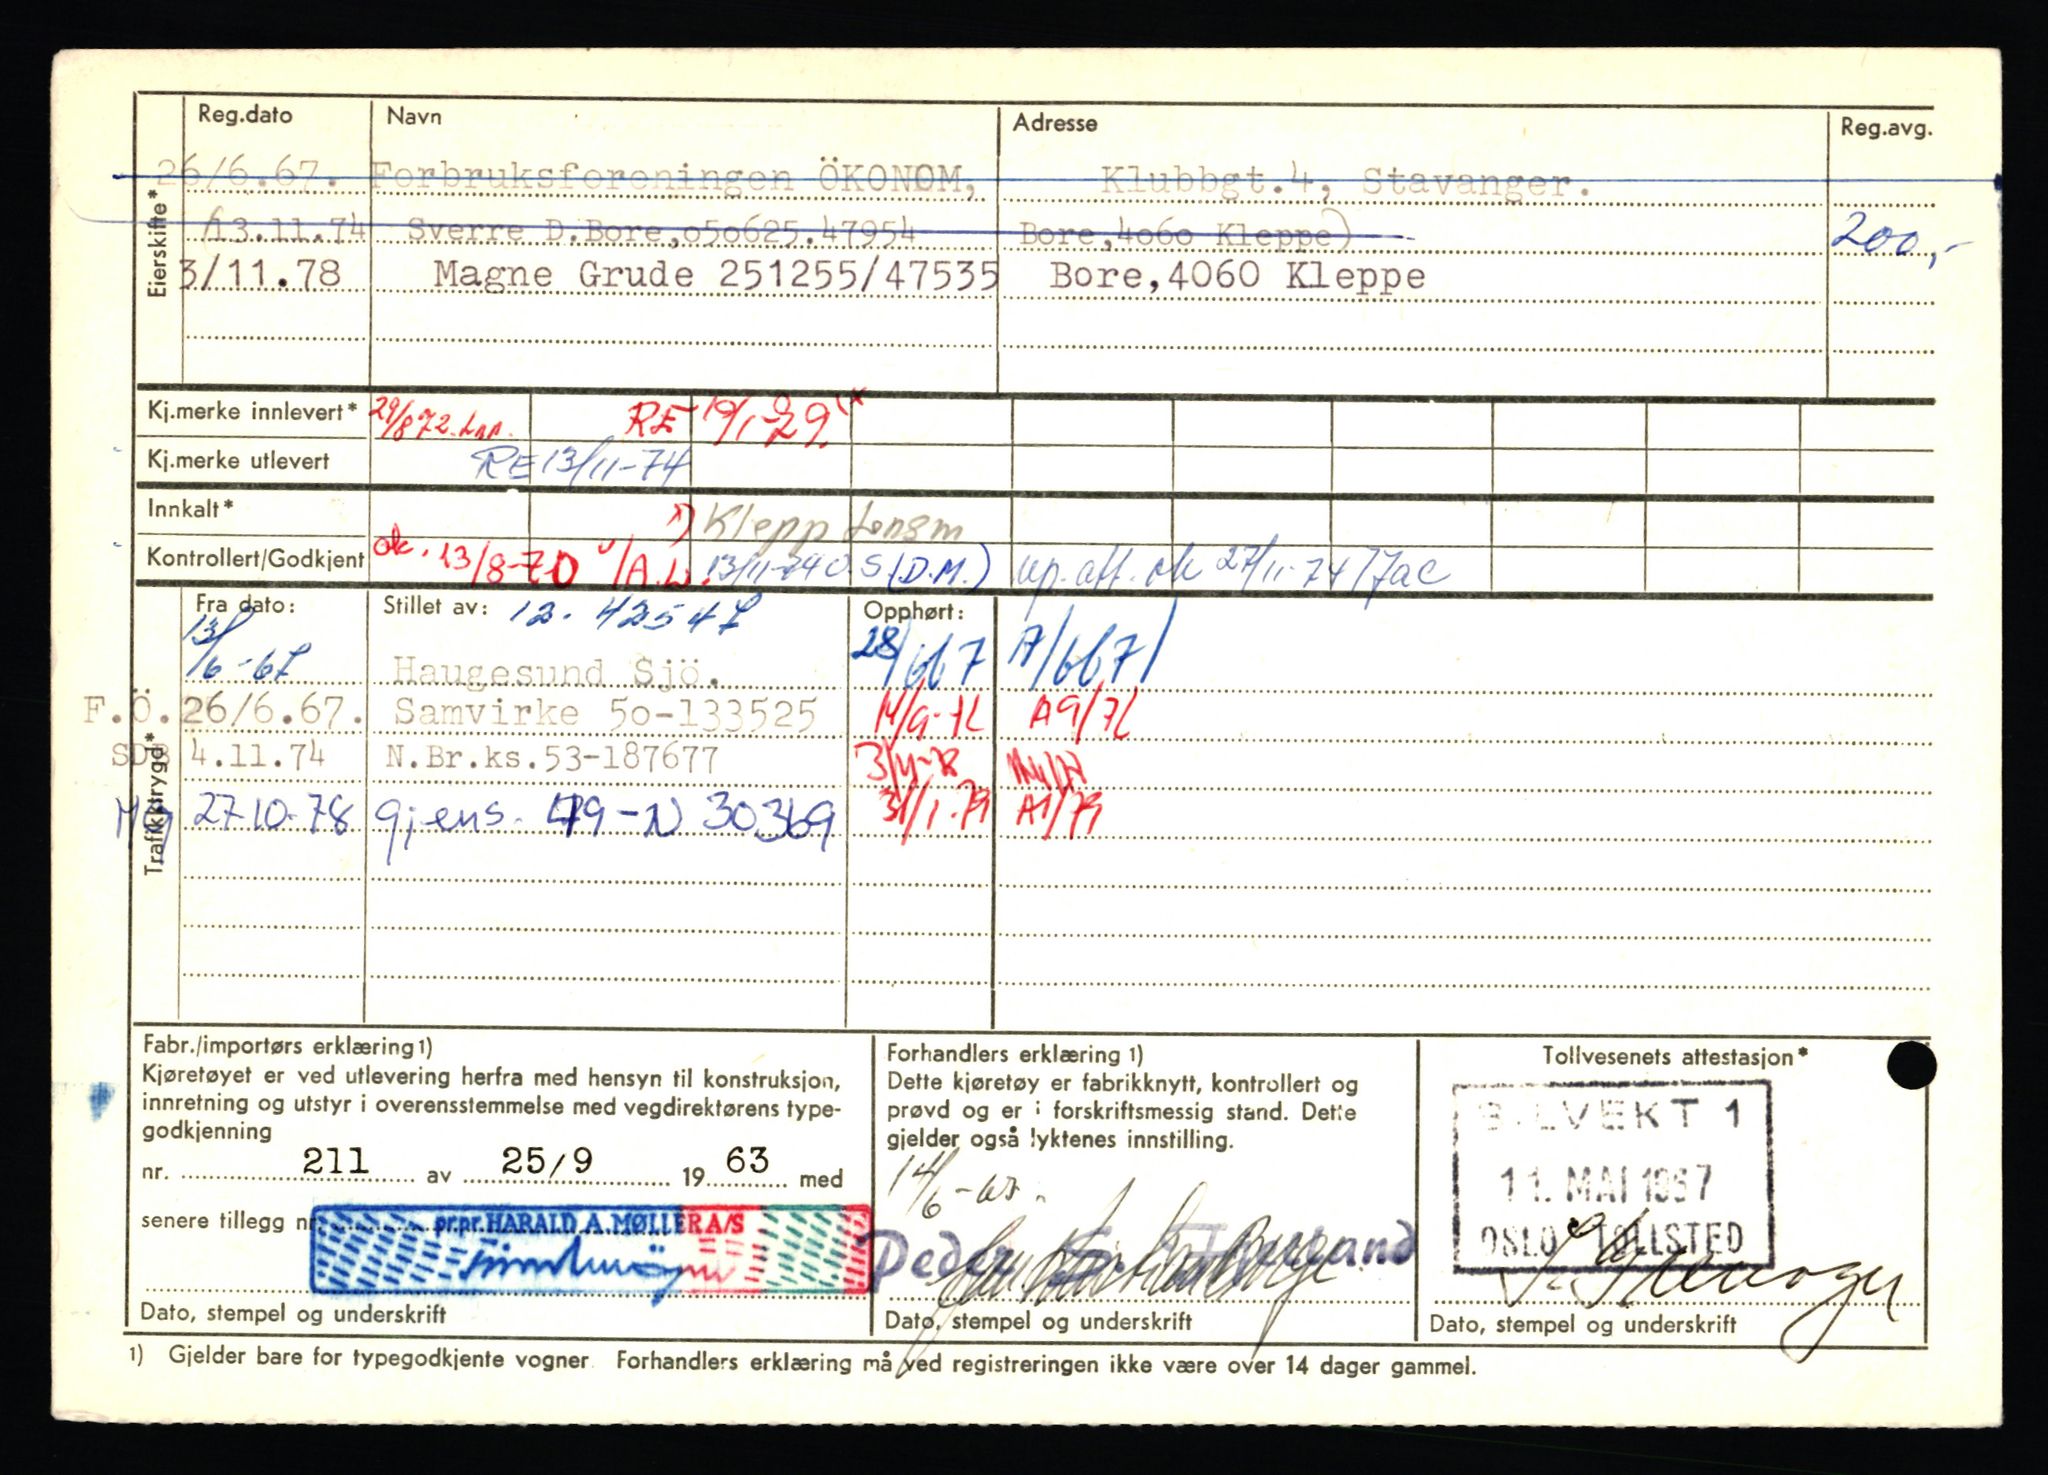 Reg.dato Navn Adresse Reg.avg.
Eierskifte*
26/6.67. Forbruksforeningen ÖKONOM, Klubbgt.4, Stavanger.
(13.11.74 Sverre D.Bore,o5o625.47954 Bore,4o6o Kleppe) 200,-
3/11.78 Magne Grude 251255/47535 Bore,4060 Kleppe
Kj.merke innlevert* 29/8 72. RE 19/1-79.
Kj.merke utlevert RE 13/11-74
Innkalt* x) Klepp
Kontrollert/Godkjent ok. 13/8-70 13/11-74 O.S (D.M.) ok 27/11-74
Trafikktrygd*
Fra dato: Stillet av: 12. 42547 Opphørt:
13/6-67 Haugesund Sjö. 28/6 67 A/6671
F.Ö. 26/6.67. Samvirke 5o-133525 A9/72
SDB 4.11.74 N.Br.ks.53-187677
MG 27-10-78 Gjens. 479-N 30369 31/1.79 A1/79
Fabr./importørs erklæring 1)
Kjøretøyet er ved utlevering herfra med hensyn til konstruksjon,
innretning og utstyr i overensstemmelse med vegdirektørens type-
godkjenning
nr. 211 av 25/9 19 63 med
senere tillegg nr.
pr.pr. HARALD A. MØLLER A/S
Dato, stempel og underskrift
Forhandlers erklæring 1)
Dette kjøretøy er fabrikknytt, kontrollert og
prøvd og er i forskriftsmessig stand. Dette
gjelder også lyktenes innstilling.
14/6-67.
Dato, stempel og underskrift
Tollvesenets attestasjon*
BILVEKT 1
11. MAI 1967
OSLO TOLLSTED
Dato, stempel og underskrift
1) Gjelder bare for typegodkjente vogner. Forhandlers erklæring må ved registreringen ikke være over 14 dager gammel.